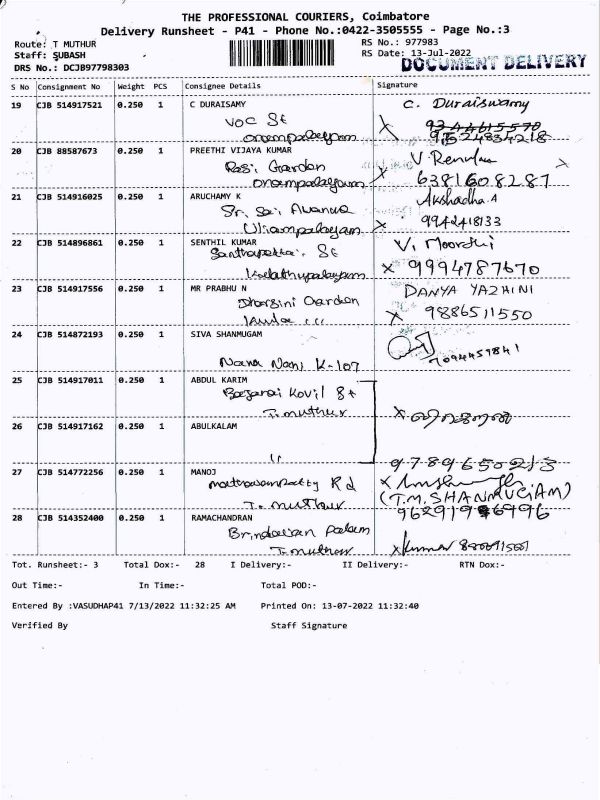 THE PROFESSIONAL COURIERS, Coimbatore
Delivery Runsheet - P41 - Phone No.:0422-3505555 - Page No.:3
Route: T MUTHUR RS No.: 977983
Staff: SUBASH RS Date: 13-Jul-2022
DRS No.: DCJB97798303 DOCUMENT DELIVERY
S No Consignment No Weight PCS Consignee Details Signature
19 CJB 514917521 0.250 1 C DURAISAMY C. Duraiswamy
VOC St
onampalayam
20 CJB 88587673 0.250 1 PREETHI VIJAYA KUMAR
Rasi Garden 6381608287
onampalayam
21 CJB 514916025 0.250 1 ARUCHAMY K Akshadha A
Sri Sai Avenue 9942418133
Uliampalayam
22 CJB 514896861 0.250 1 SENTHIL KUMAR V. Moorthi
Santhapettai St
9994787670
23 CJB 514917556 0.250 1 MR PRABHU N DANYA YAZHINI
Dharsini Garden
9886511550
24 CJB 514872193 0.250 1 SIVA SHANMUGAM
Nana Nani K-107 7094457841
25 CJB 514917011 0.250 1 ABDUL KARIM
Kovil St
T. muthur
26 CJB 514917162 0.250 1 ABULKALAM
11 9789650213
27 CJB 514772256 0.250 1 MANOJ
Rd (T.M. SHANMUGAM)
T. muthur
28 CJB 514352400 0.250 1 RAMACHANDRAN
Brindavan
T. muthur Kumar
Tot. Runsheet:- 3 Total Dox:- 28 I Delivery:- II Delivery:- RTN Dox:-
Out Time:- In Time:- Total POD:-
Entered By :VASUDHAP41 7/13/2022 11:32:25 AM Printed On: 13-07-2022 11:32:40
Verified By Staff Signature